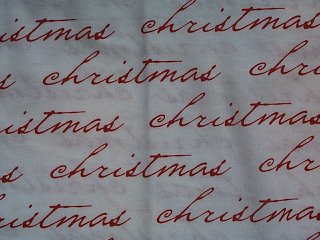 christmas christmas
s christmas chri
istmas christmas
s christmas chr
istmas christmas